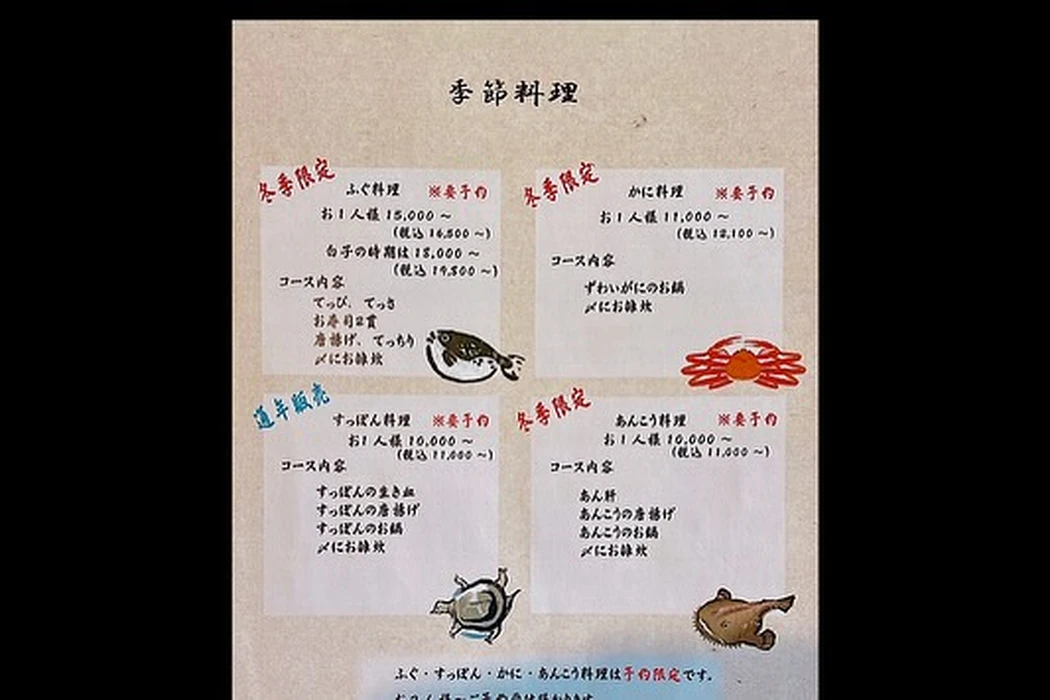 季節料理
冬季限定
ふぐ料理 ※要予約
お1人様 15,000 〜
(税込 16,500 〜)
白子の時期は 18,000 〜
(税込 19,800 〜)
コース内容
てっぴ、てっさ
お寿司2貫
唐揚げ、てっちり
〆にお雑炊
冬季限定
かに料理 ※要予約
お1人様 11,000 〜
(税込 12,100 〜)
コース内容
ずわいがにのお鍋
〆にお雑炊
通年販売
すっぽん料理 ※要予約
お1人様 10,000 〜
(税込 11,000 〜)
コース内容
すっぽんの生き血
すっぽんの唐揚げ
すっぽんのお鍋
〆にお雑炊
冬季限定
あんこう料理 ※要予約
お1人様 10,000 〜
(税込 11,000 〜)
コース内容
あん肝
あんこうの唐揚げ
あんこうのお鍋
〆にお雑炊
ふぐ・すっぽん・かに・あんこう料理は予約限定です。